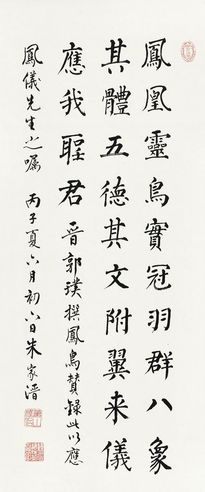 鳳凰靈鳥實冠羽群八象
其體五德其文附翼来儀
應我聖君晋郭璞撰鳳鳥贊録此以應
鳳儀先生之囑丙子夏六月初六日朱家溍